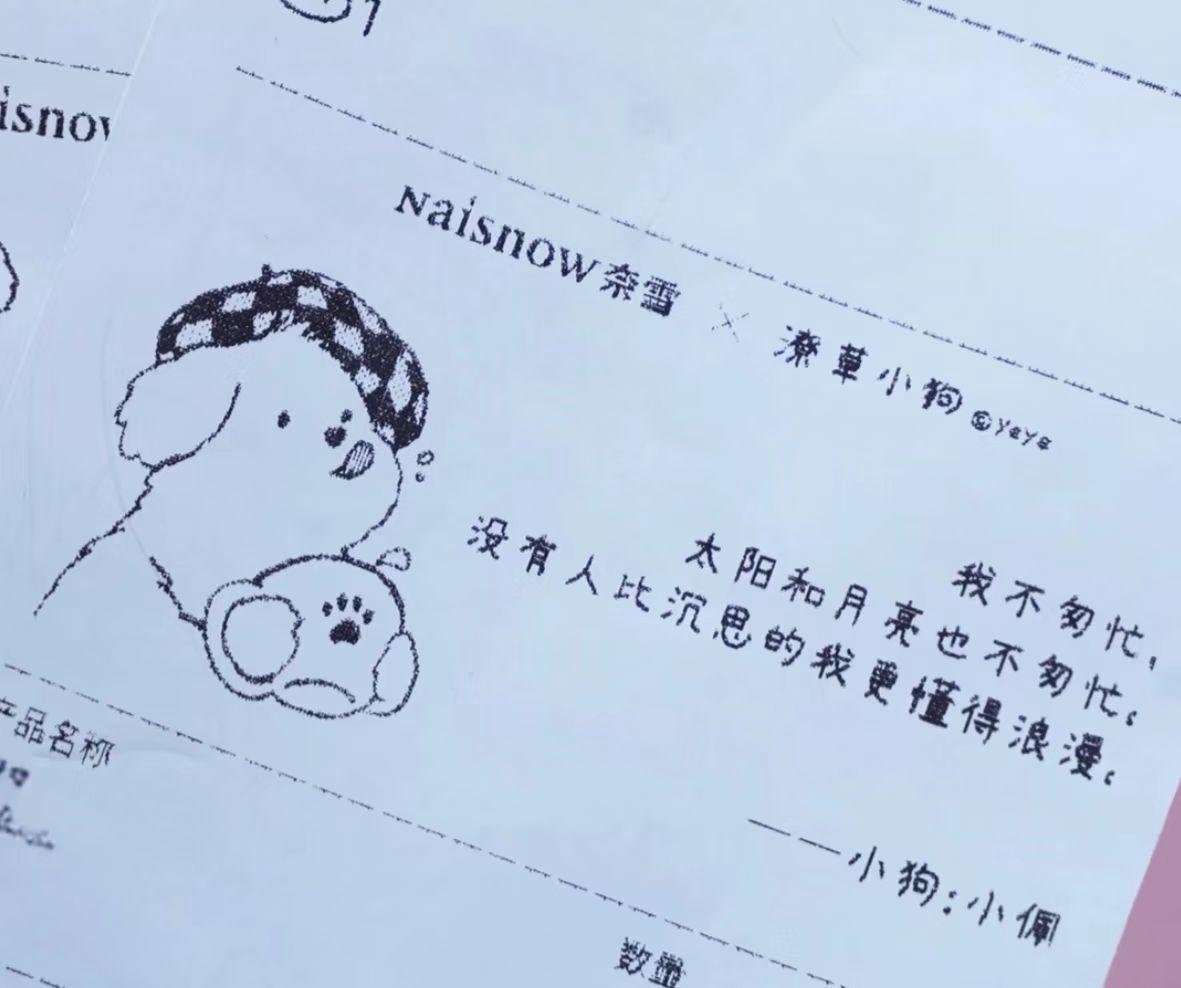 Naisnow奈雪 × 潦草小狗©yaya
我不匆忙,
太阳和月亮也不匆忙。
没有人比沉思的我更懂得浪漫。
——小狗:小佩
产品名称
数量